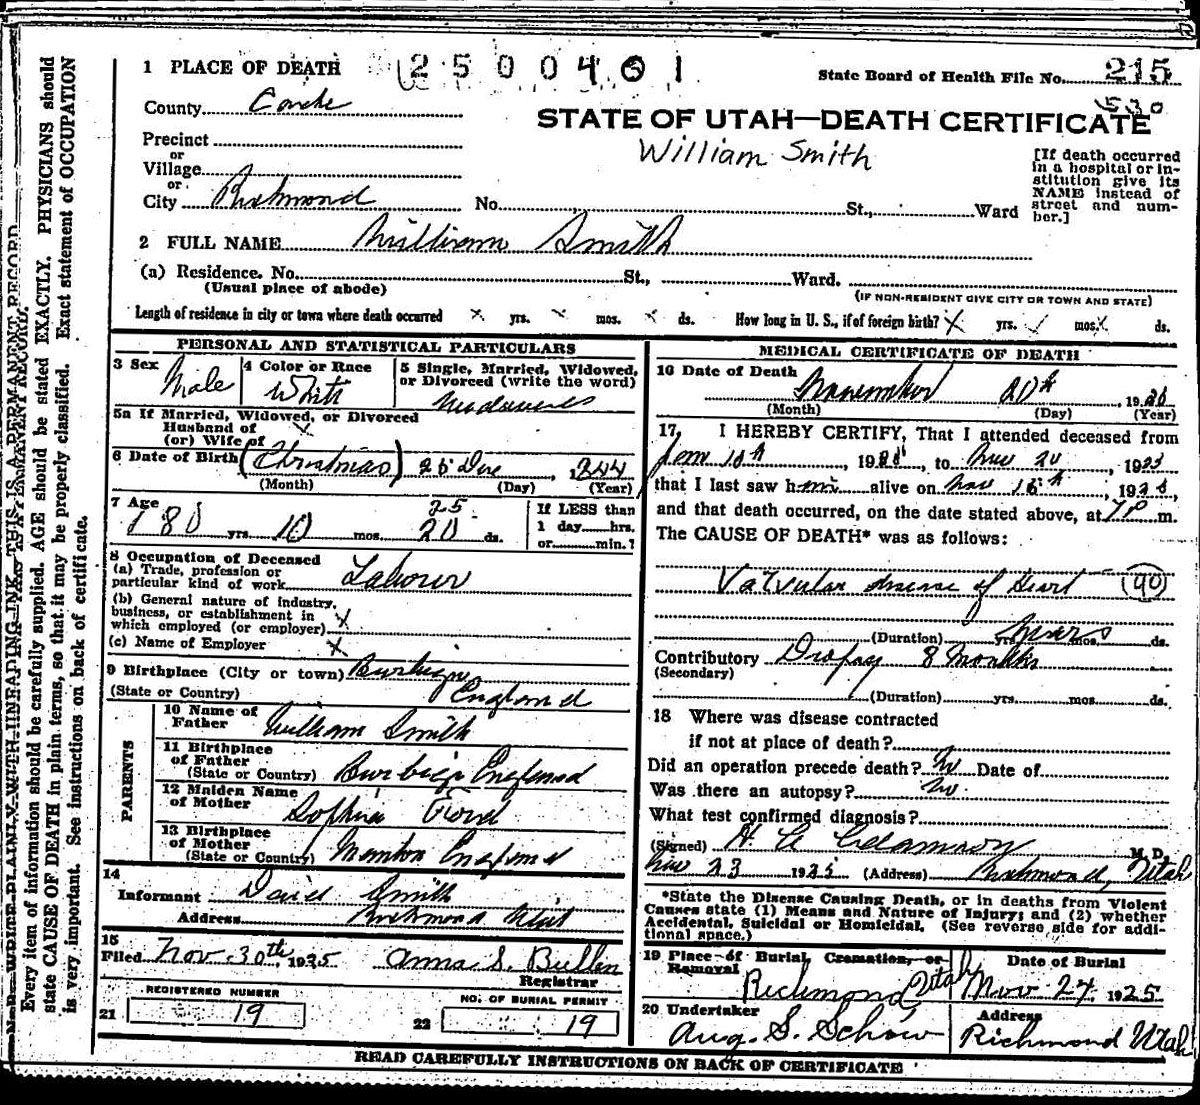 1 PLACE OF DEATH 2500401 State Board of Health File No. 215
County Cache 530
STATE OF UTAH—DEATH CERTIFICATE
William Smith
Precinct
or
Village
or
City Richmond No. St., Ward
[If death occurred
in a hospital or in-
stitution give its
NAME instead of
street and num-
ber.]
2 FULL NAME William Smith
(a) Residence. No. St., Ward.
(Usual place of abode) (IF NON-RESIDENT GIVE CITY OR TOWN AND STATE)
Length of residence in city or town where death occurred x yrs. x mos. x ds. How long in U. S., if of foreign birth? x yrs. mos. ds.
PERSONAL AND STATISTICAL PARTICULARS
3 Sex Male
4 Color or Race White
5 Single, Married, Widowed,
or Divorced (write the word)
5a If Married, Widowed, or Divorced
Husband of
(or) Wife of
6 Date of Birth (Christmas) 25 1844
(Month) (Day) (Year)
7 Age 80 yrs. 10 mos. 25 20 ds.
If LESS than
1 day hrs.
or min.?
8 Occupation of Deceased
(a) Trade, profession or
particular kind of work Laborer
(b) General nature of industry,
business, or establishment in
which employed (or employer) x
(c) Name of Employer x
9 Birthplace (City or town)
(State or Country) England
PARENTS
10 Name of
Father William Smith
11 Birthplace
of Father
(State or Country) England
12 Maiden Name
of Mother Sophia Ford
13 Birthplace
of Mother
(State or Country) England
14
Informant David Smith
Address Richmond Utah
15
Filed Nov. 30th 1925 Anna S. Bullen
Registrar
REGISTERED NUMBER
21 19
NO. OF BURIAL PERMIT
22 19
MEDICAL CERTIFICATE OF DEATH
16 Date of Death November 20th, 19
(Month) (Day) (Year)
17. I HEREBY CERTIFY, That I attended deceased from
19 , to Nov 20, 192
that I last saw him alive on Nov 192
and that death occurred, on the date stated above, at 7 P m.
The CAUSE OF DEATH* was as follows:
Valvular disease of Heart (90)
(Duration) years yrs. mos. ds.
Contributory Dropsy 8 Months
(Secondary)
(Duration) yrs. mos. ds.
18 Where was disease contracted
if not at place of death?
Did an operation precede death? No Date of
Was there an autopsy? No.
What test confirmed diagnosis?
(Signed) M. D.
Nov 23 1925 (Address) Richmond, Utah
*State the Disease Causing Death, or in deaths from Violent
Causes state (1) Means and Nature of Injury; and (2) whether
Accidental, Suicidal or Homicidal. (See reverse side for addi-
tional space.)
19 Place of Burial, Cremation, or
Removal Richmond Utah
Date of Burial
Nov 27 1925
20 Undertaker
Aug. S. Schow
Address
Richmond Utah
READ CAREFULLY INSTRUCTIONS ON BACK OF CERTIFICATE
N. B.—WRITE PLAINLY WITH UNFADING INK. THIS IS A PERMANENT RECORD.
Every item of information should be carefully supplied. AGE should be stated EXACTLY. PHYSICIANS should
state CAUSE OF DEATH in plain terms, so that it may be properly classified. Exact statement of OCCUPATION
is very important. See instructions on back of certificate.